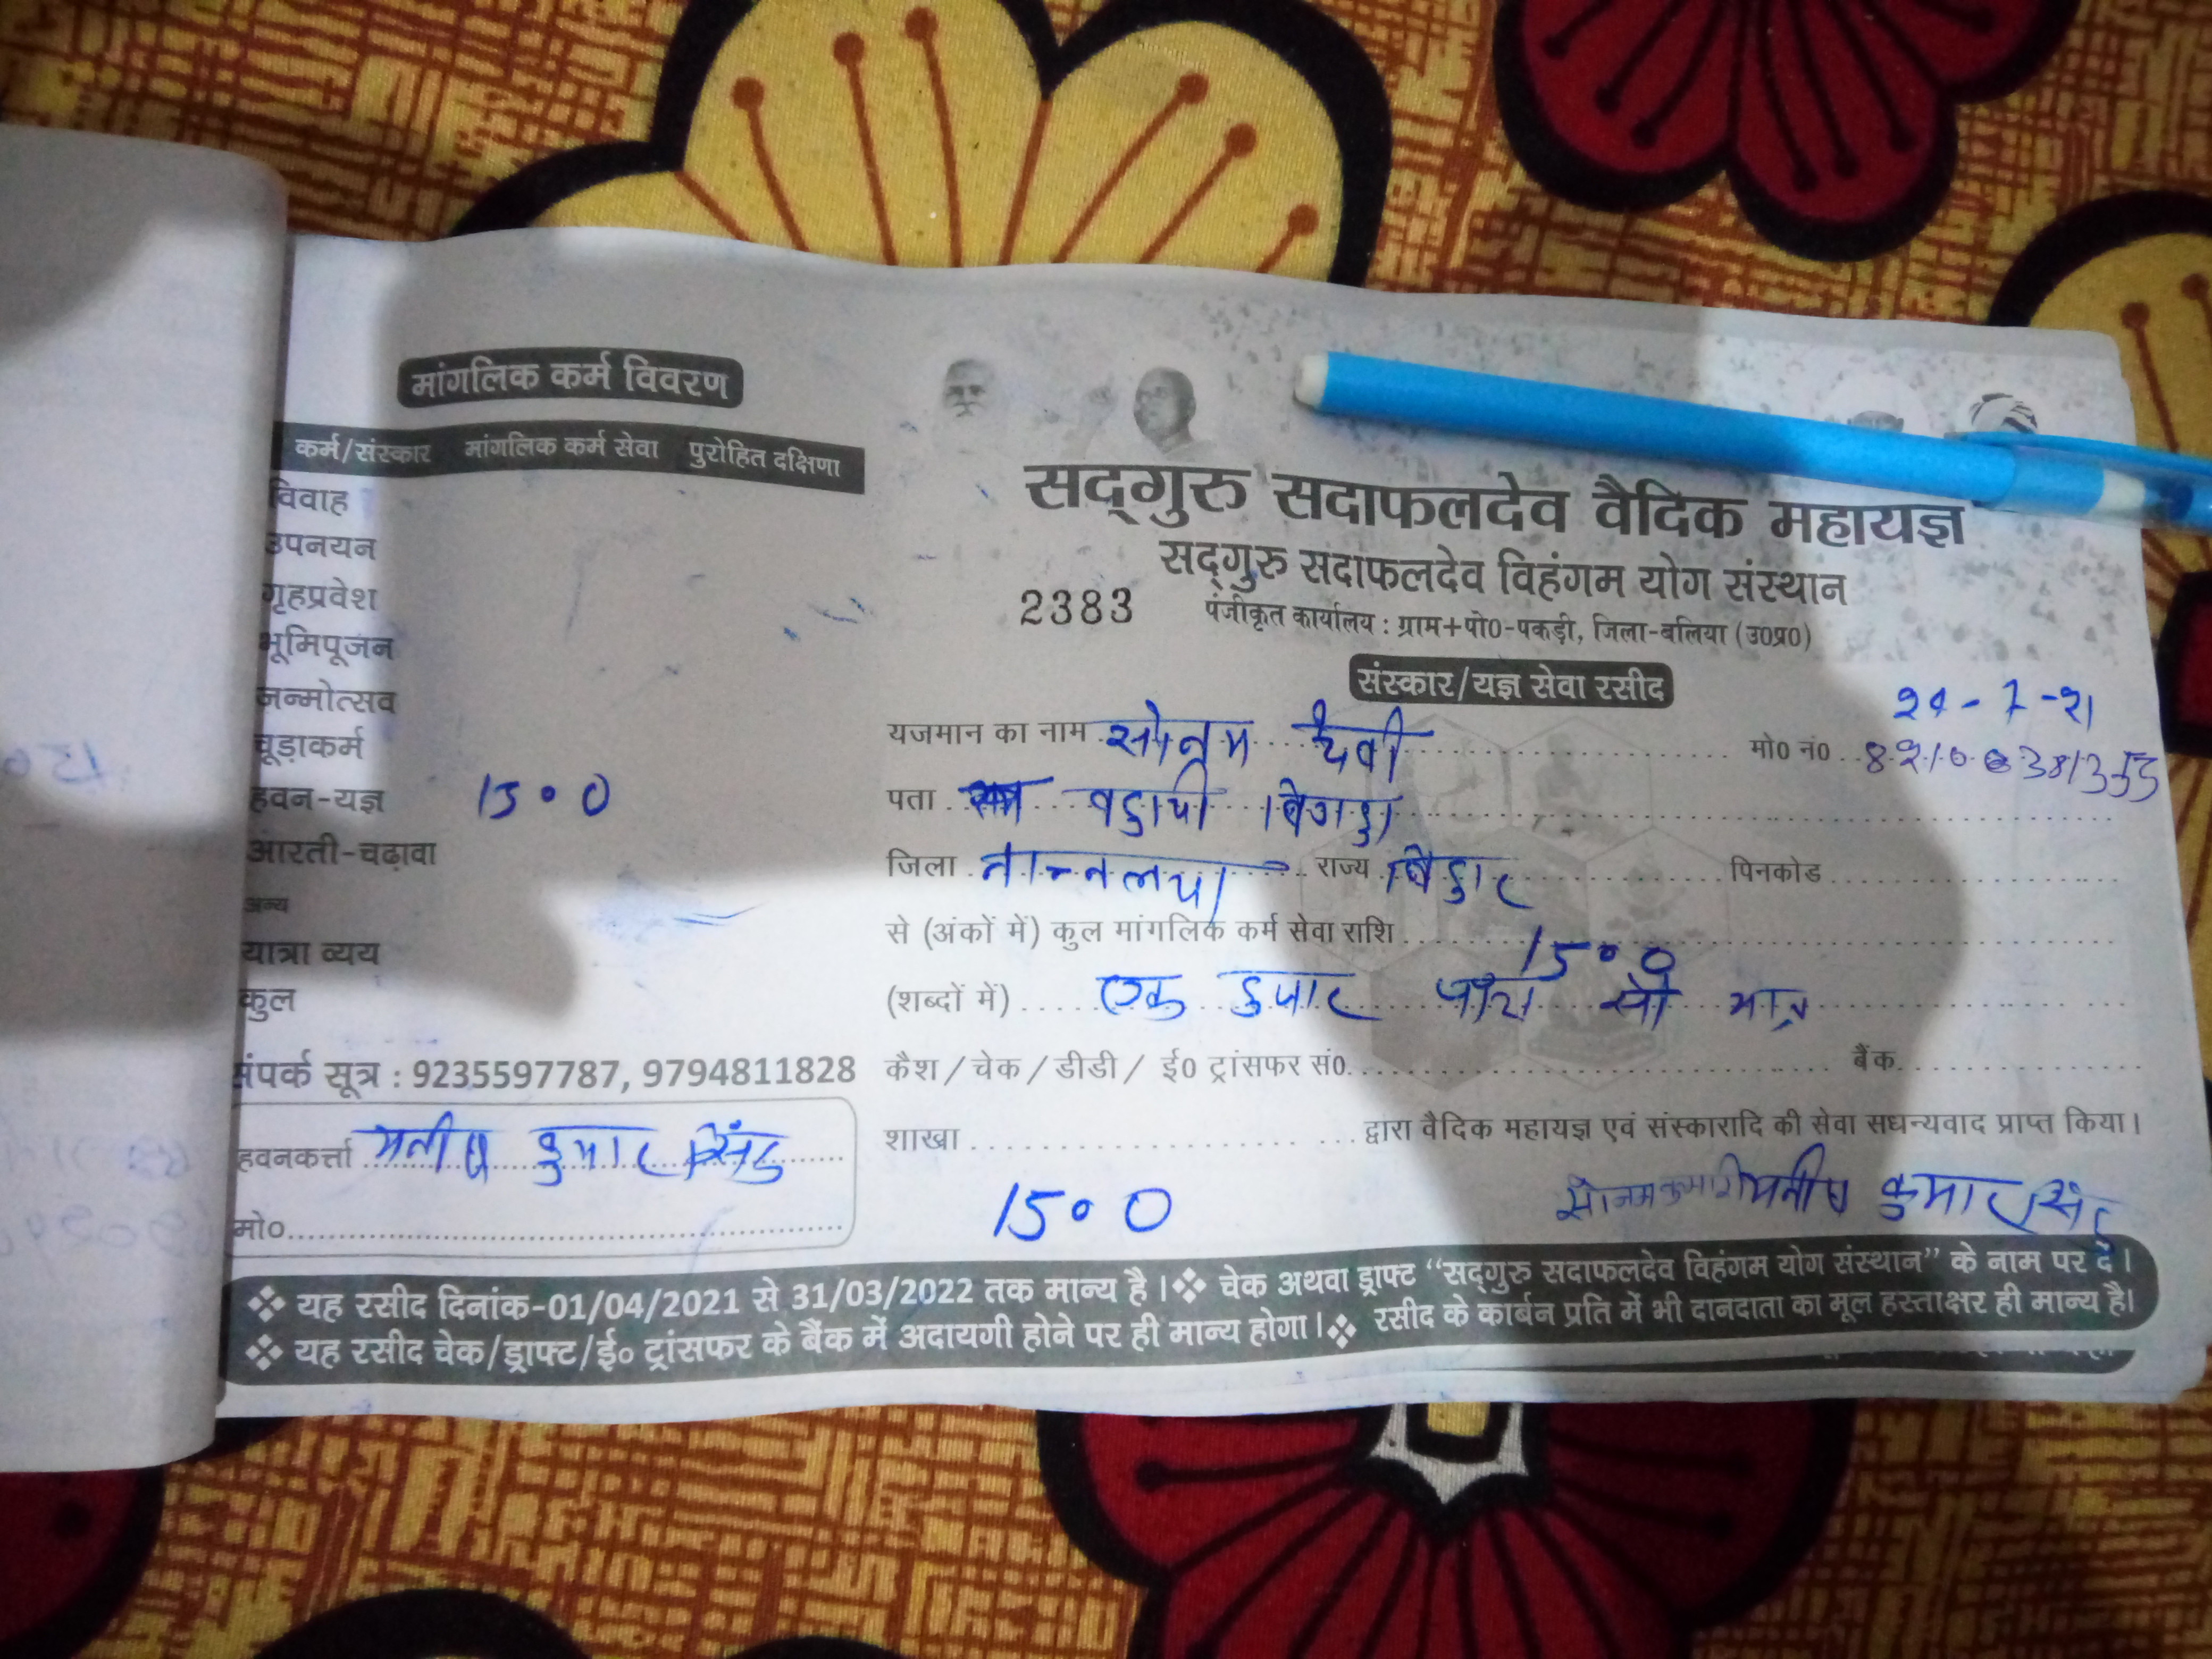 मांगलिक कर्म विवरण
कर्म/संस्कार मांगलिक कर्म सेवा पुरोहित दक्षिणा
विवाह
उपनयन
गृहप्रवेश
भूमिपूजन
जन्मोत्सव
चूड़ाकर्म
हवन-यज्ञ 1500
आरती-चढ़ावा
अन्य
यात्रा व्यय
कुल
संपर्क सूत्र : 9235597787, 9794811828
हवनकर्त्ता मनीष कुमार सिंह
मो०
सद्‌गुरु सदाफलदेव वैदिक महायज्ञ
सद्‌गुरु सदाफलदेव विहंगम योग संस्थान
2383 पंजीकृत कार्यालय : ग्राम+पो0-पकड़ी, जिला-बलिया (उ0प्र0)
संस्कार/यज्ञ सेवा रसीद
यजमान का नाम सोनम देवी मो0 नं0
पता
जिला राज्य बिहार पिनकोड
से (अंकों में) कुल मांगलिक कर्म सेवा राशि 1500
(शब्दों में) एक हजार पांच सौ मात्र
कैश / चेक / डीडी / ई0 ट्रांसफर सं0. बैंक
शाखा द्वारा वैदिक महायज्ञ एवं संस्कारादि की सेवा सधन्यवाद प्राप्त किया।
1500 सोनम कुमारी मनीष कुमार सिंह
❖ यह रसीद दिनांक-01/04/2021 से 31/03/2022 तक मान्य है। ❖ चेक अथवा ड्राफ्ट “सद्‌गुरु सदाफलदेव विहंगम योग संस्थान” के नाम पर दें।
❖ यह रसीद चेक/ड्राफ्ट/ई० ट्रांसफर के बैंक में अदायगी होने पर ही मान्य होगा। ❖ रसीद के कार्बन प्रति में भी दानदाता का मूल हस्ताक्षर ही मान्य है।